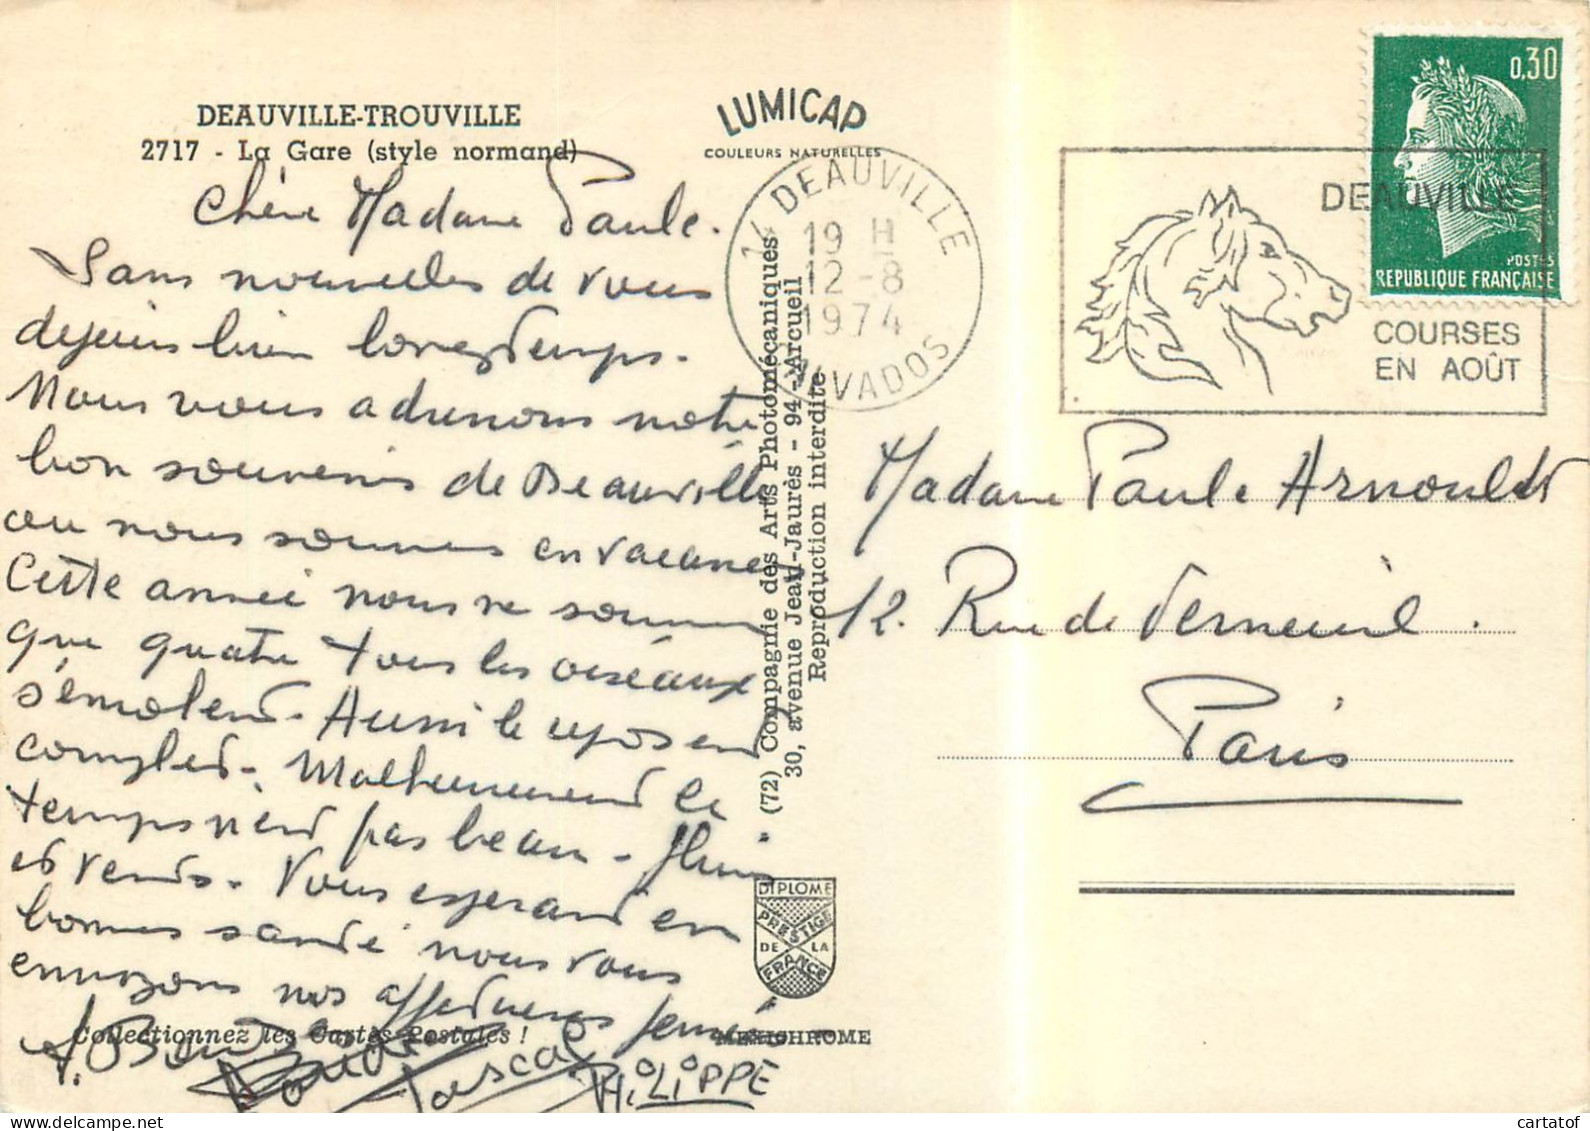 DEAUVILLE-TROUVILLE
2717 - La Gare (style normand)
LUMICAP
COULEURS NATURELLES
Chère Madame Paule.
Sans nouvelles de vous
depuis bien longtemps.
Nous vous adressons notre
bon souvenir de Deauville
ou nous sommes en vacances
Cette année nous ne sommes
que quatre tous les oiseaux
s'émolent. Aussi le repos est
complet. Malheureusement le
temps n'est pas beau - Pluie
et vents. Vous espérant en
bonne santé nous vous
envoyons nos affectueuses pensées
Pascal
PHiLiPPE
Collectionnez les Cartes Postales !
MEXICHROME
(72) Compagnie des Arts Photomécaniques
30, avenue Jean-Jaurès - 94 - Arcueil
Reproduction interdite
DIPLOME
PRESTIGE
DE LA
FRANCE
14 DEAUVILLE
19 H
12-8
1974
CALVADOS
DEAUVILLE
COURSES
EN AOÛT
0,30
POSTES
REPUBLIQUE FRANÇAISE
Madame Paule Arnouldt
12. Rue de Verneuil.
Paris
cartatof.com